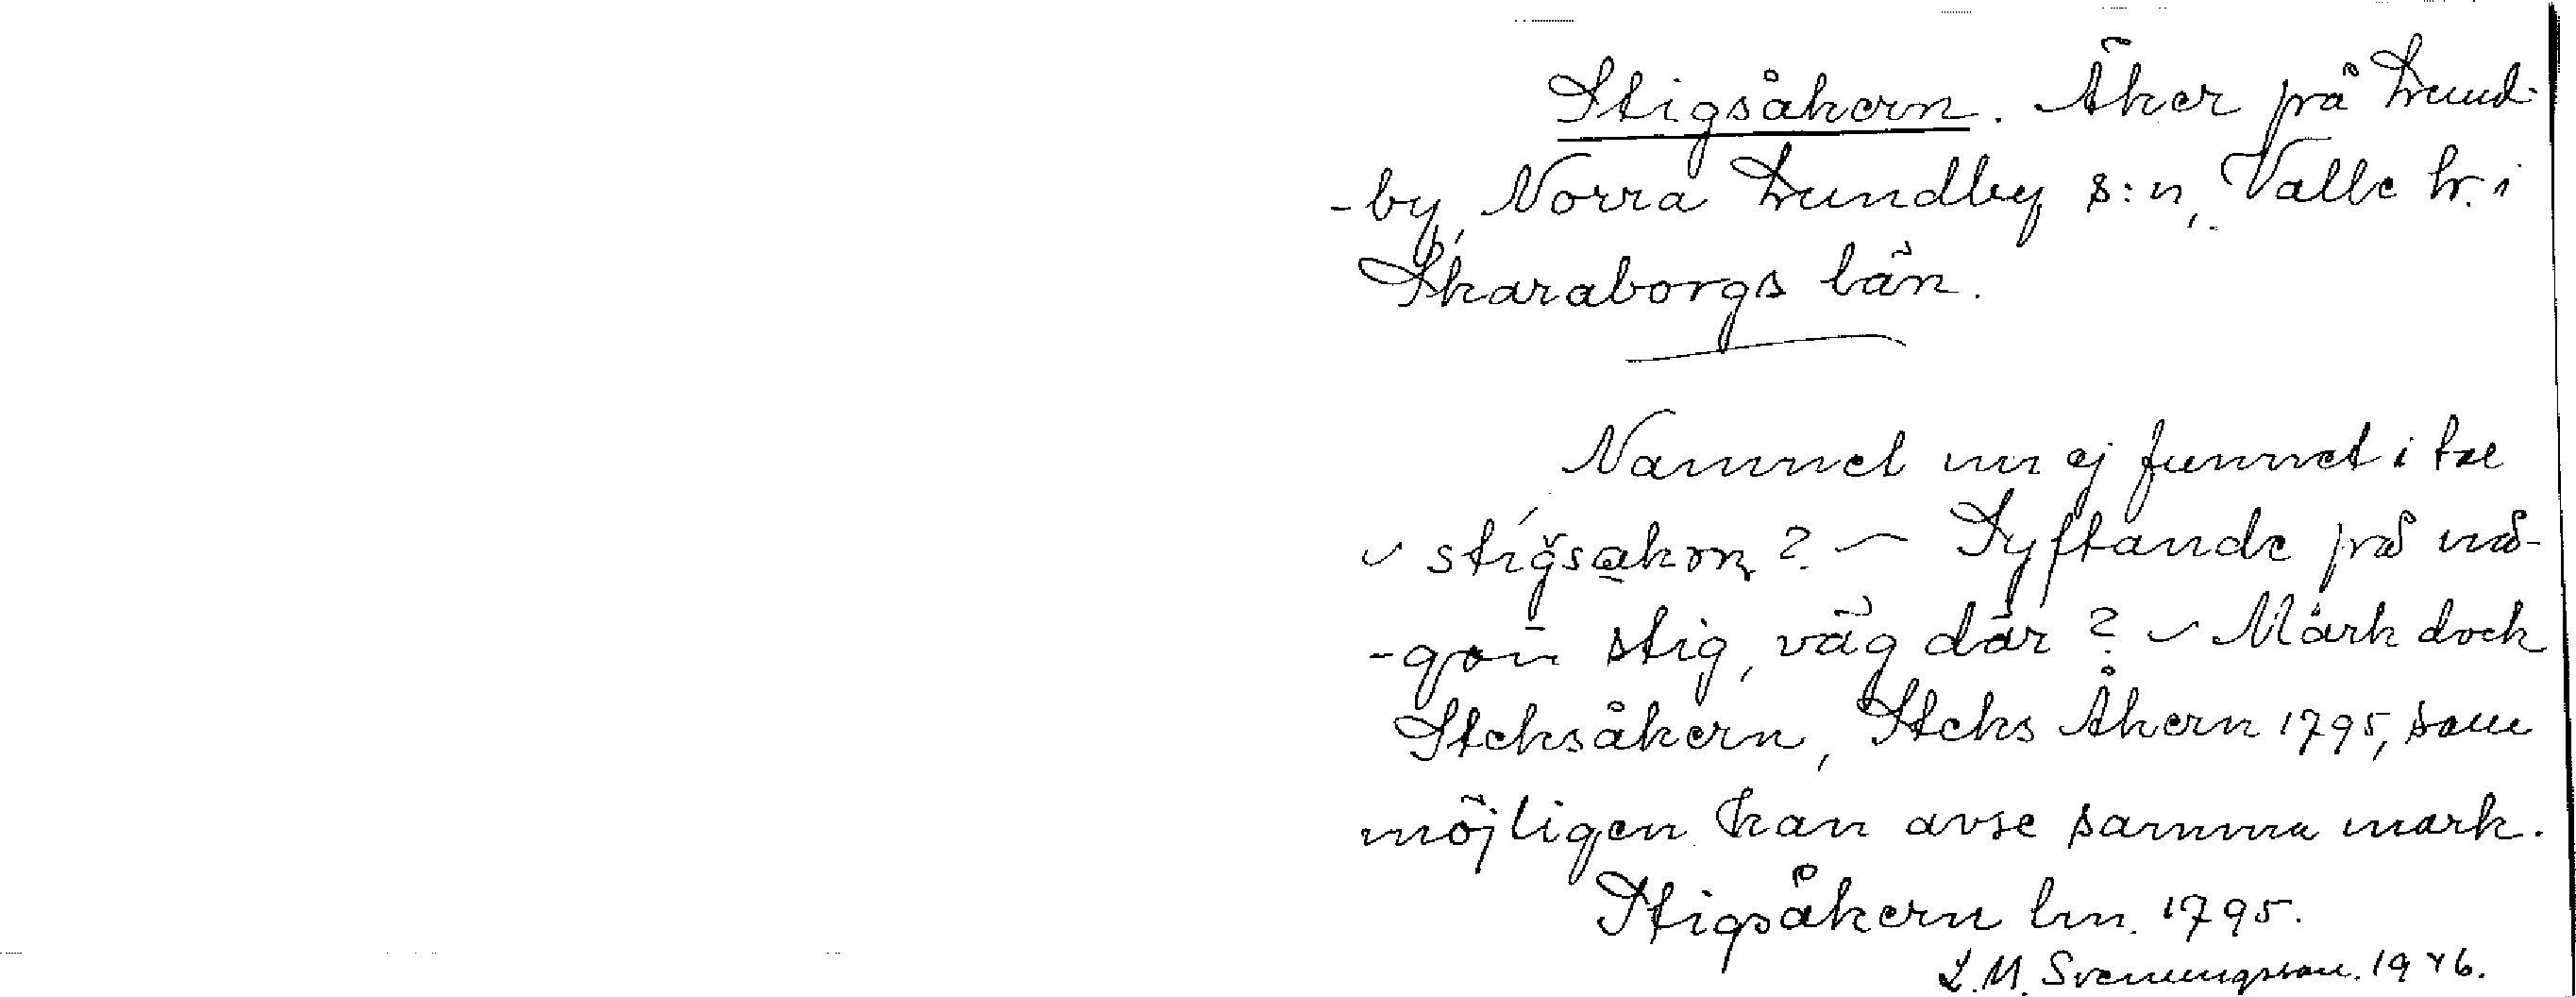 Stigsåkern. Åker på Lund-
-by, Norra Lundby s:n, Valle hr. i
Skaraborgs län.
Namnet nu ej funnet i tal
~ stigsakon? ~ Syftande på nå-
-gon stig, väg där? ~ Märk dock
Steksåkern, Steks Åkern 1795, som
möjligen kan avse samma mark.
Stigsåkern lm. 1795.
L.M. Svenungsson. 1946.